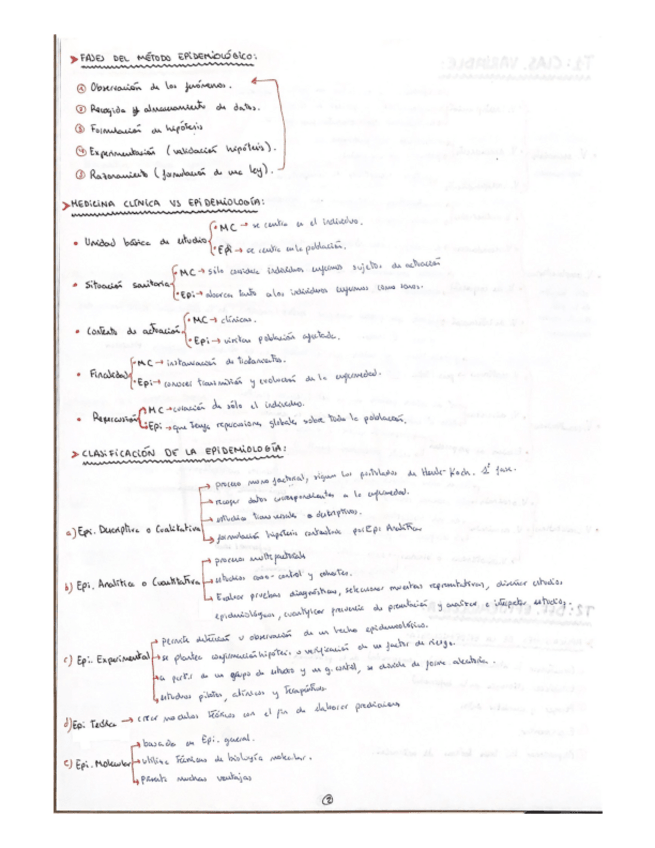 > FASES DEL MÉTODO EPIDEMIOLÓGICO:
① Observación de los fenómenos.
② Recogida y almacenamiento de datos.
③ Formulación de hipótesis
④ Experimentación (validación hipótesis).
⑤ Razonamiento (formulación de una ley).
> MEDICINA CLÍNICA VS EPIDEMIOLOGÍA:
• Unidad básica de estudio
• MC → se centra en el individuo.
• Epi → se centra en la población.
• Situación sanitaria
• MC → sólo considera individuos enfermos sujetos de actuación
• Epi → abarca tanto a los individuos enfermos como sanos.
• Contexto de actuación
• MC → clínicas.
• Epi → visitan población afectada.
• Finalidad
• MC → instauración de tratamientos.
• Epi → conocer transmisión y evolución de la enfermedad.
• Repercusión
MC → curación de sólo el individuo.
Epi → que tenga repercusiones globales sobre toda la población.
> CLASIFICACIÓN DE LA EPIDEMIOLOGÍA:
a) Epi. Descriptiva o Cualitativa
→ proceso monofactorial, siguen los postulados de Henle-Koch. 1ª fase.
→ recoger datos correspondientes a la enfermedad.
→ estudios transversales o descriptivos.
→ formulación hipótesis por Epi Analítica
b) Epi. Analítica o Cuantitativa
→ procesos multifactoriales
→ estudios caso-control y cohortes.
→ Evaluar pruebas diagnósticas, seleccionar muestras representativas, diseñar estudios
epidemiológicos, cuantificar de presentación y analizar e interpretar estudios.
c) Epi. Experimental
→ permite detección u observación de un hecho epidemiológico.
→ se plantea confirmación hipótesis o verificación de un factor de riesgo.
→ a partir de un grupo de estudio y un g. control, se divide de forma aleatoria.
→ estudios pilotos, clínicos y terapéuticos.
d) Epi Teórica → crear modelos teóricos con el fin de elaborar predicciones.
e) Epi. Molecular
→ basada en Epi. general.
→ utiliza técnicas de biología molecular.
→ presenta muchas ventajas
②